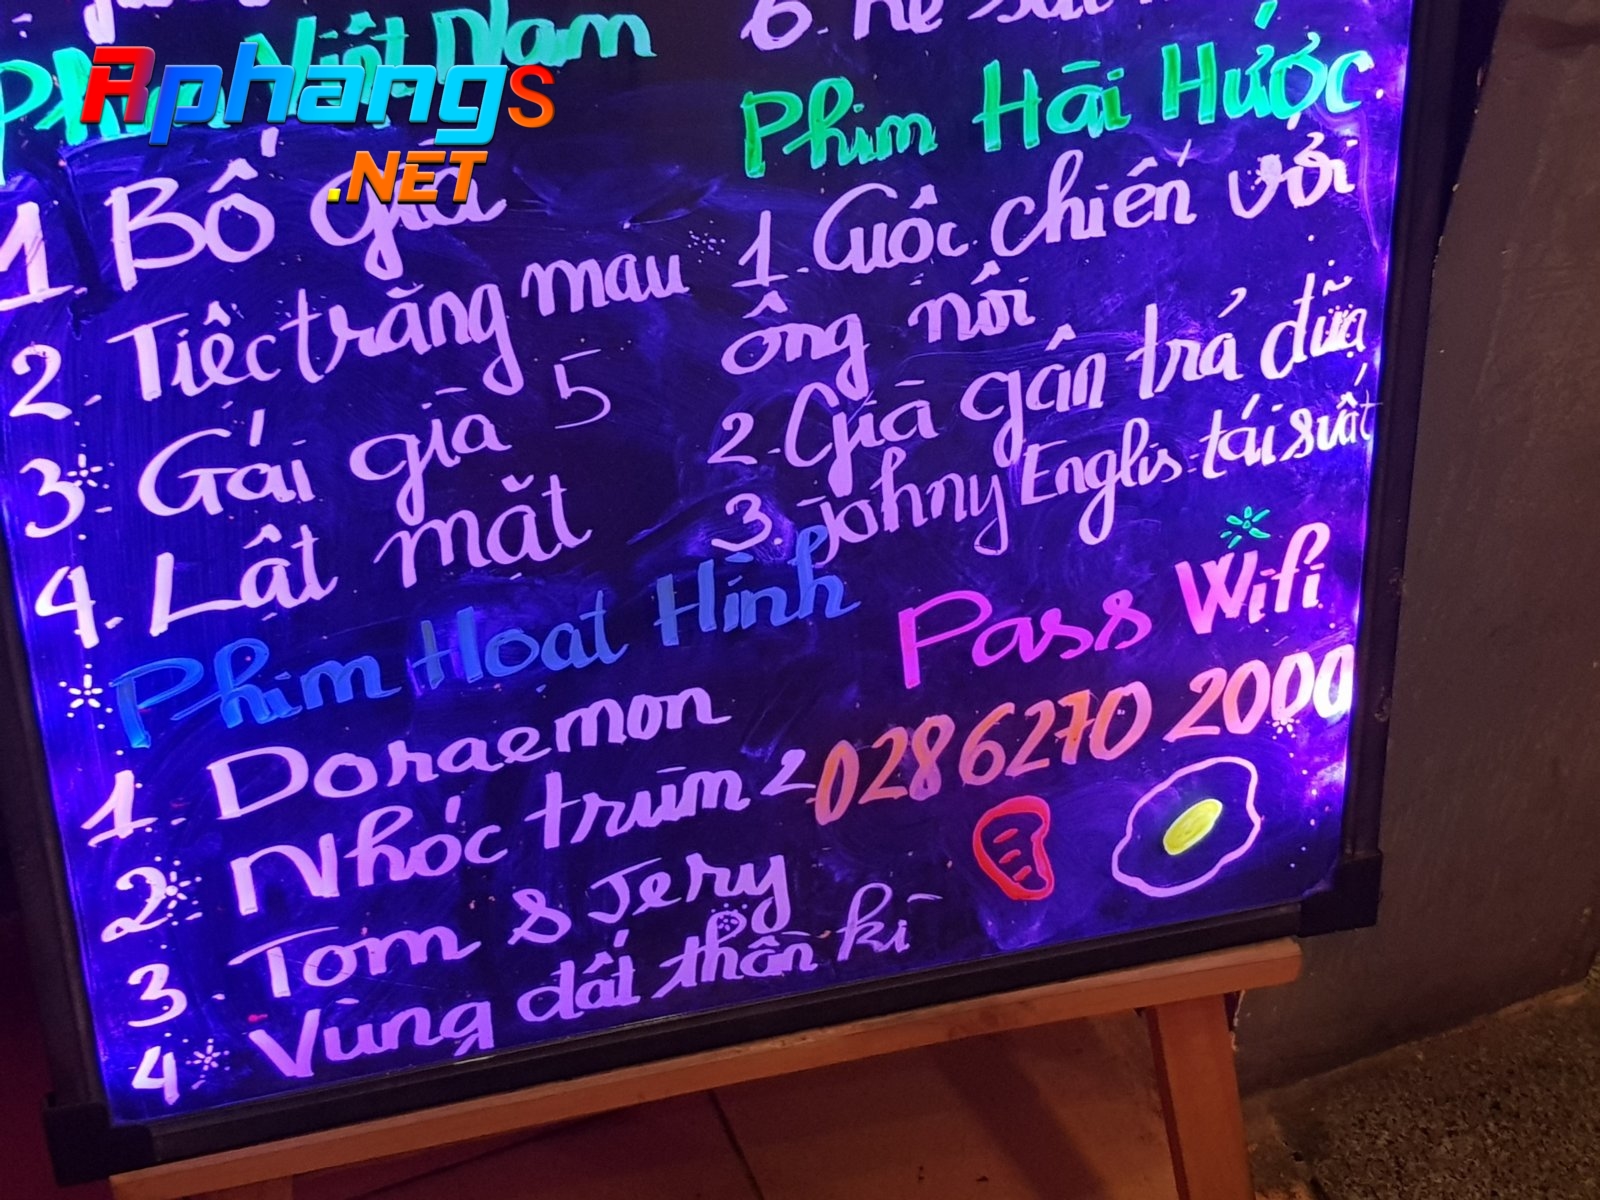 Phim Việt Nam
Rphangs
.NET
1 Bố già
2. Tiệc trăng mau
3. Gái già 5
4. Lật mặt
Phim Hoạt Hình
1. Doraemon
2. Nhóc trùm 2
3. Tom & Jery
4 Vùng đất thần kì
6.
Phim Hài Hước
1. Cuộc chiến với
ông nói
2. Già gân trả đũa
3. Johny Englis tái suất
Pass Wifi
028 6270 2000